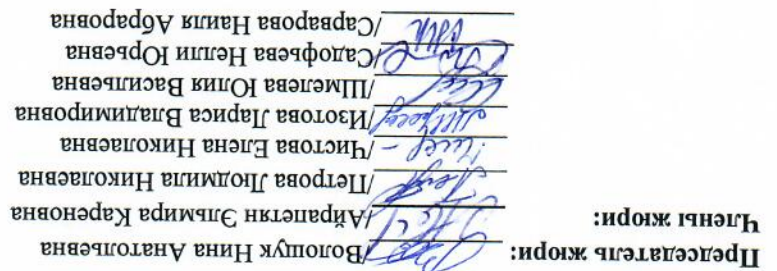 Председатель жюри: /Волощук Нина Анатольевна
Члены жюри: /Айрапетян Эльмира Кареновна
/Петрова Людмила Николаевна
/Чистова Елена Николаевна
/Изотова Лариса Владимировна
/Шмелева Юлия Васильевна
/Садофьева Нелли Юрьевна
/Сарварова Наиля Абраровна